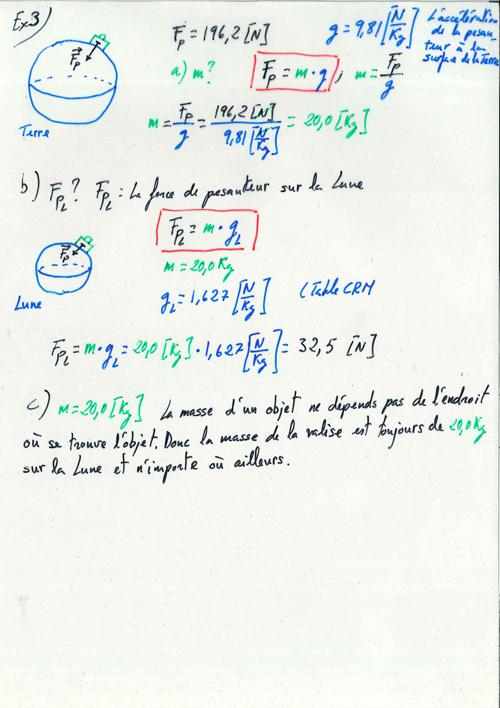 Ex3) Fp = 196,2 [N] g = 9,81 [N/Kg] L'accélération de la pesanteur à la surface de la Terre
Fp
a) m? Fp = m · g ; m = Fp/g
Terre
m = Fp/g = 196,2 [N] / 9,81 [N/Kg] = 20,0 [Kg]
b) FpL ? FpL : La force de pesanteur sur la Lune
FpL = m · gL
Fp
m = 20,0 Kg
Lune
gL = 1,627 [N/Kg] (Table CRM
FpL = m · gL = 20,0 [Kg] · 1,627 [N/Kg] = 32,5 [N]
c) m = 20,0 [Kg] La masse d'un objet ne dépends pas de l'endroit
où se trouve l'objet. Donc la masse de la valise est toujours de 20,0 Kg
sur la Lune et n'importe où ailleurs.